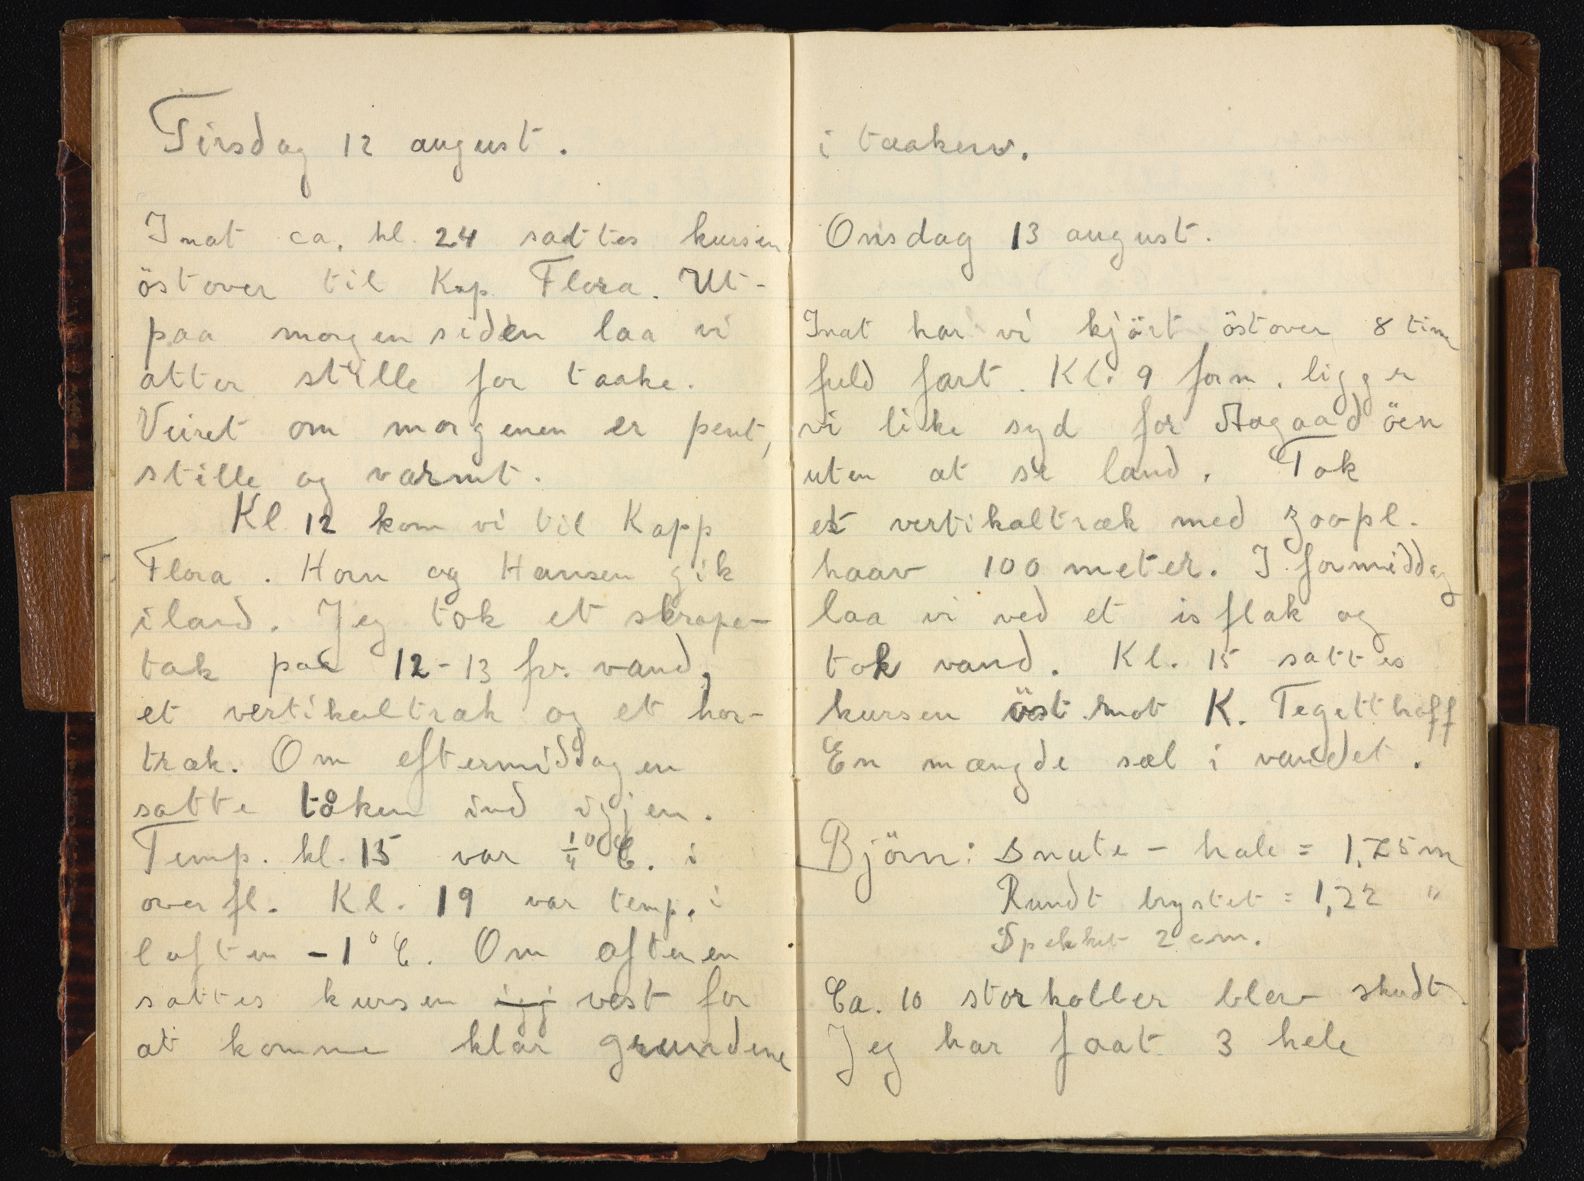 Tirsdag 12 august.
I nat ca. kl. 24 sattes kursen
östover til Kap Flora. Ut-
paa morgensiden laa vi
atter stille for taake.
Veiret om morgenen er pent,
stille og varmt.
Kl 12 kom vi til Kapp
Flora. Horn og Hansen gik
iland. Jeg tok et skrape-
tak paa 12-13 fv. vand,
et vertikaltræk og et hor-
træk. Om eftermiddagen
satte tåken ind igjen.
Temp. kl. 15 var 1/4° C. i
overfl. Kl. 19 var temp. i
luften -1° C. Om aftenen
sattes kursen igj vest for
at komme klar grundene
i taaken.
Onsdag 13 august.
Inat har vi kjört östover 8 time
fuld fart. Kl. 9 form. ligger
vi like syd for Aagaard öen
uten at se land. Tok
et vertikaltræk med zoopl.
haav 100 meter. I formiddag
laa vi ved et isflak og
tok vand. Kl. 15 sattes
kursen öst mot K. Tegetthoff
En mængde sæl i vandet.
Björn: Snute - hale = 1,75 m
Rundt brystet = 1,22 "
Spekket 2 cm.
Ca. 10 storkobber blev skudt.
Jeg har faat 3 hele